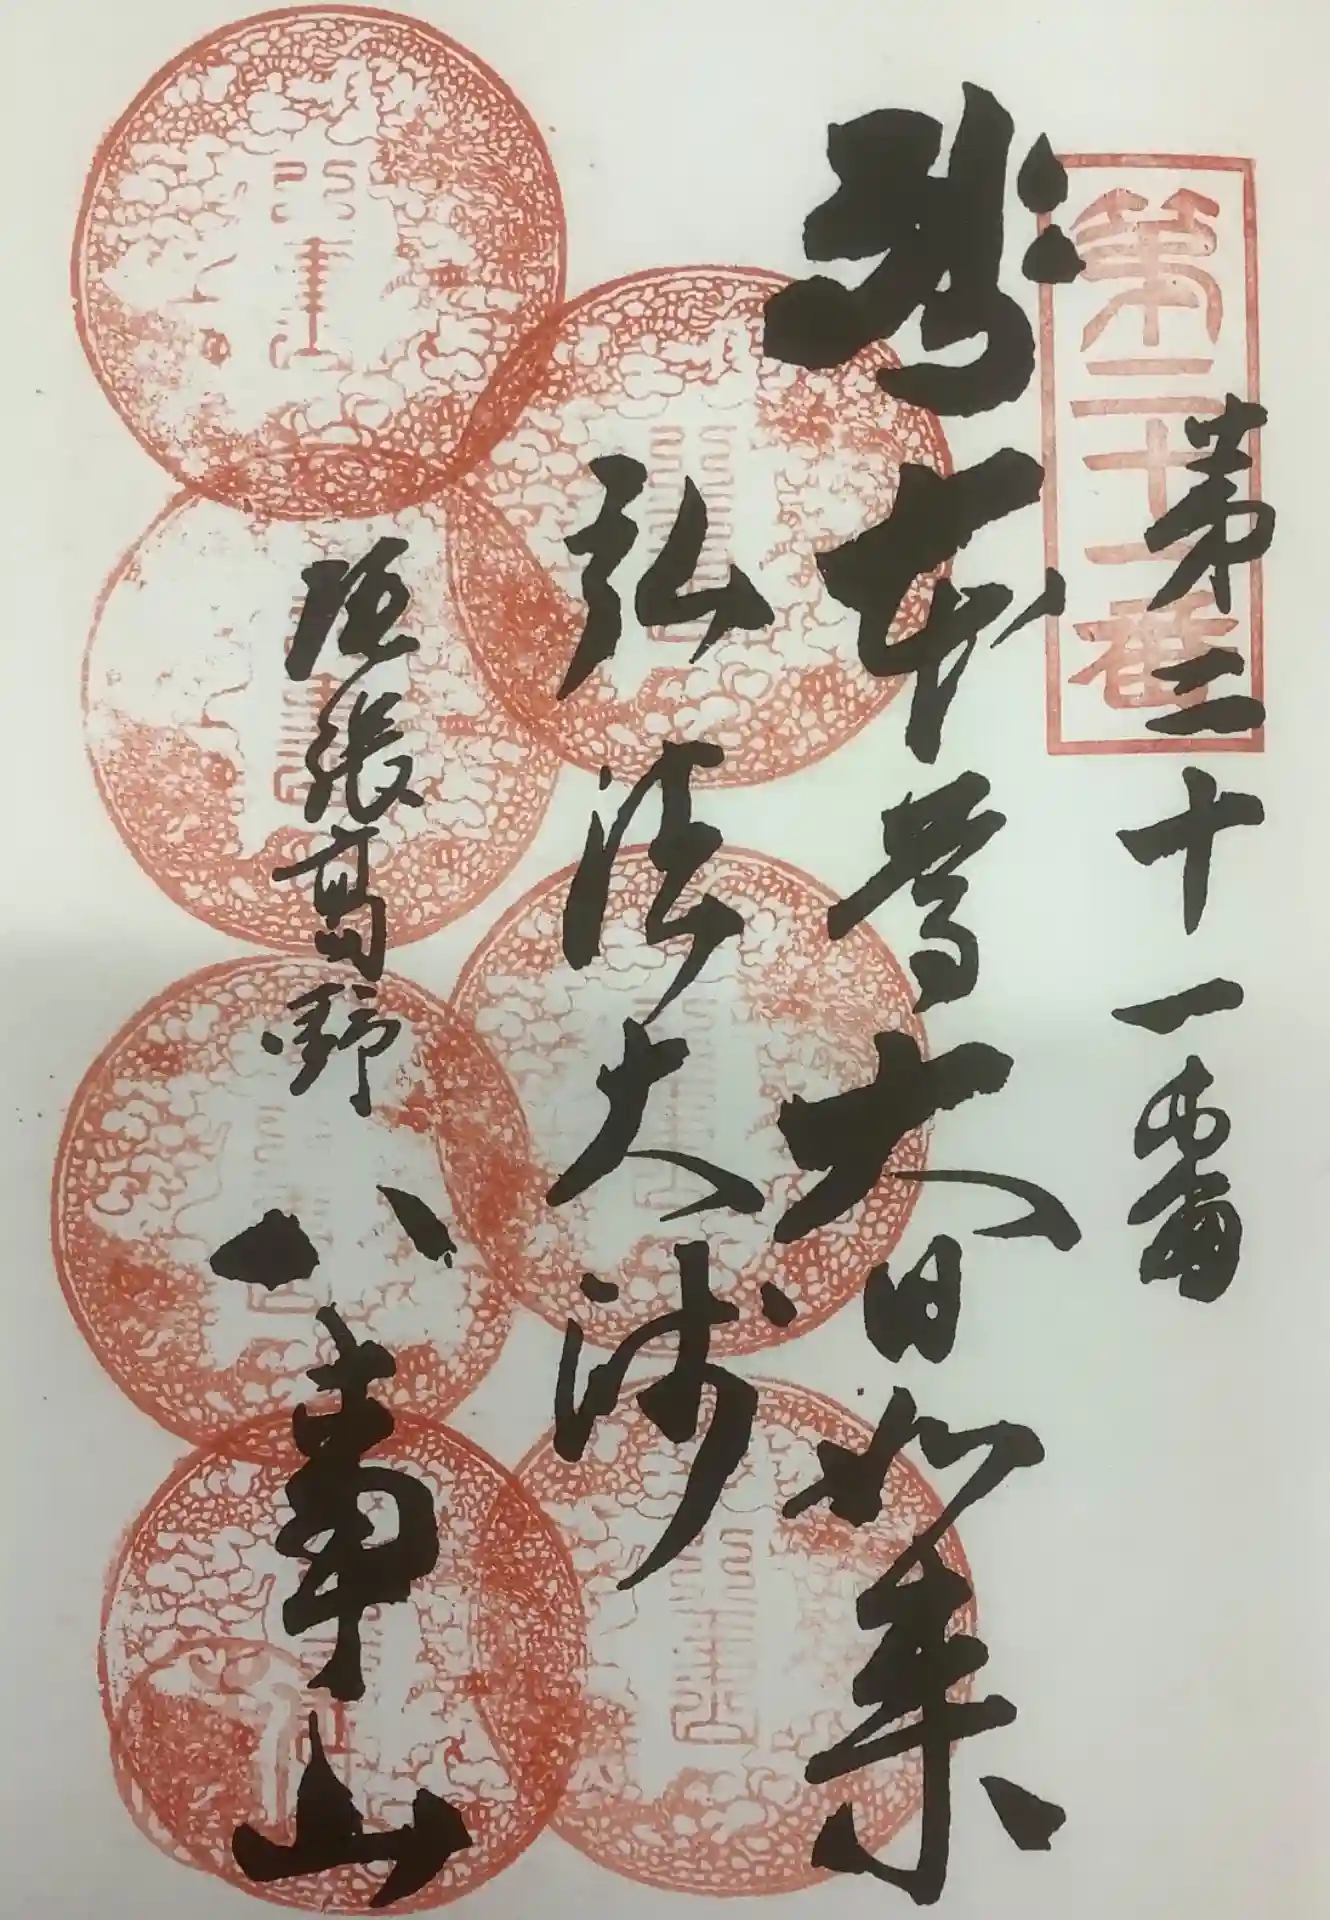 第二十一番
第二十一番
本尊大日如来
弘法大師
尾張高野 八事山